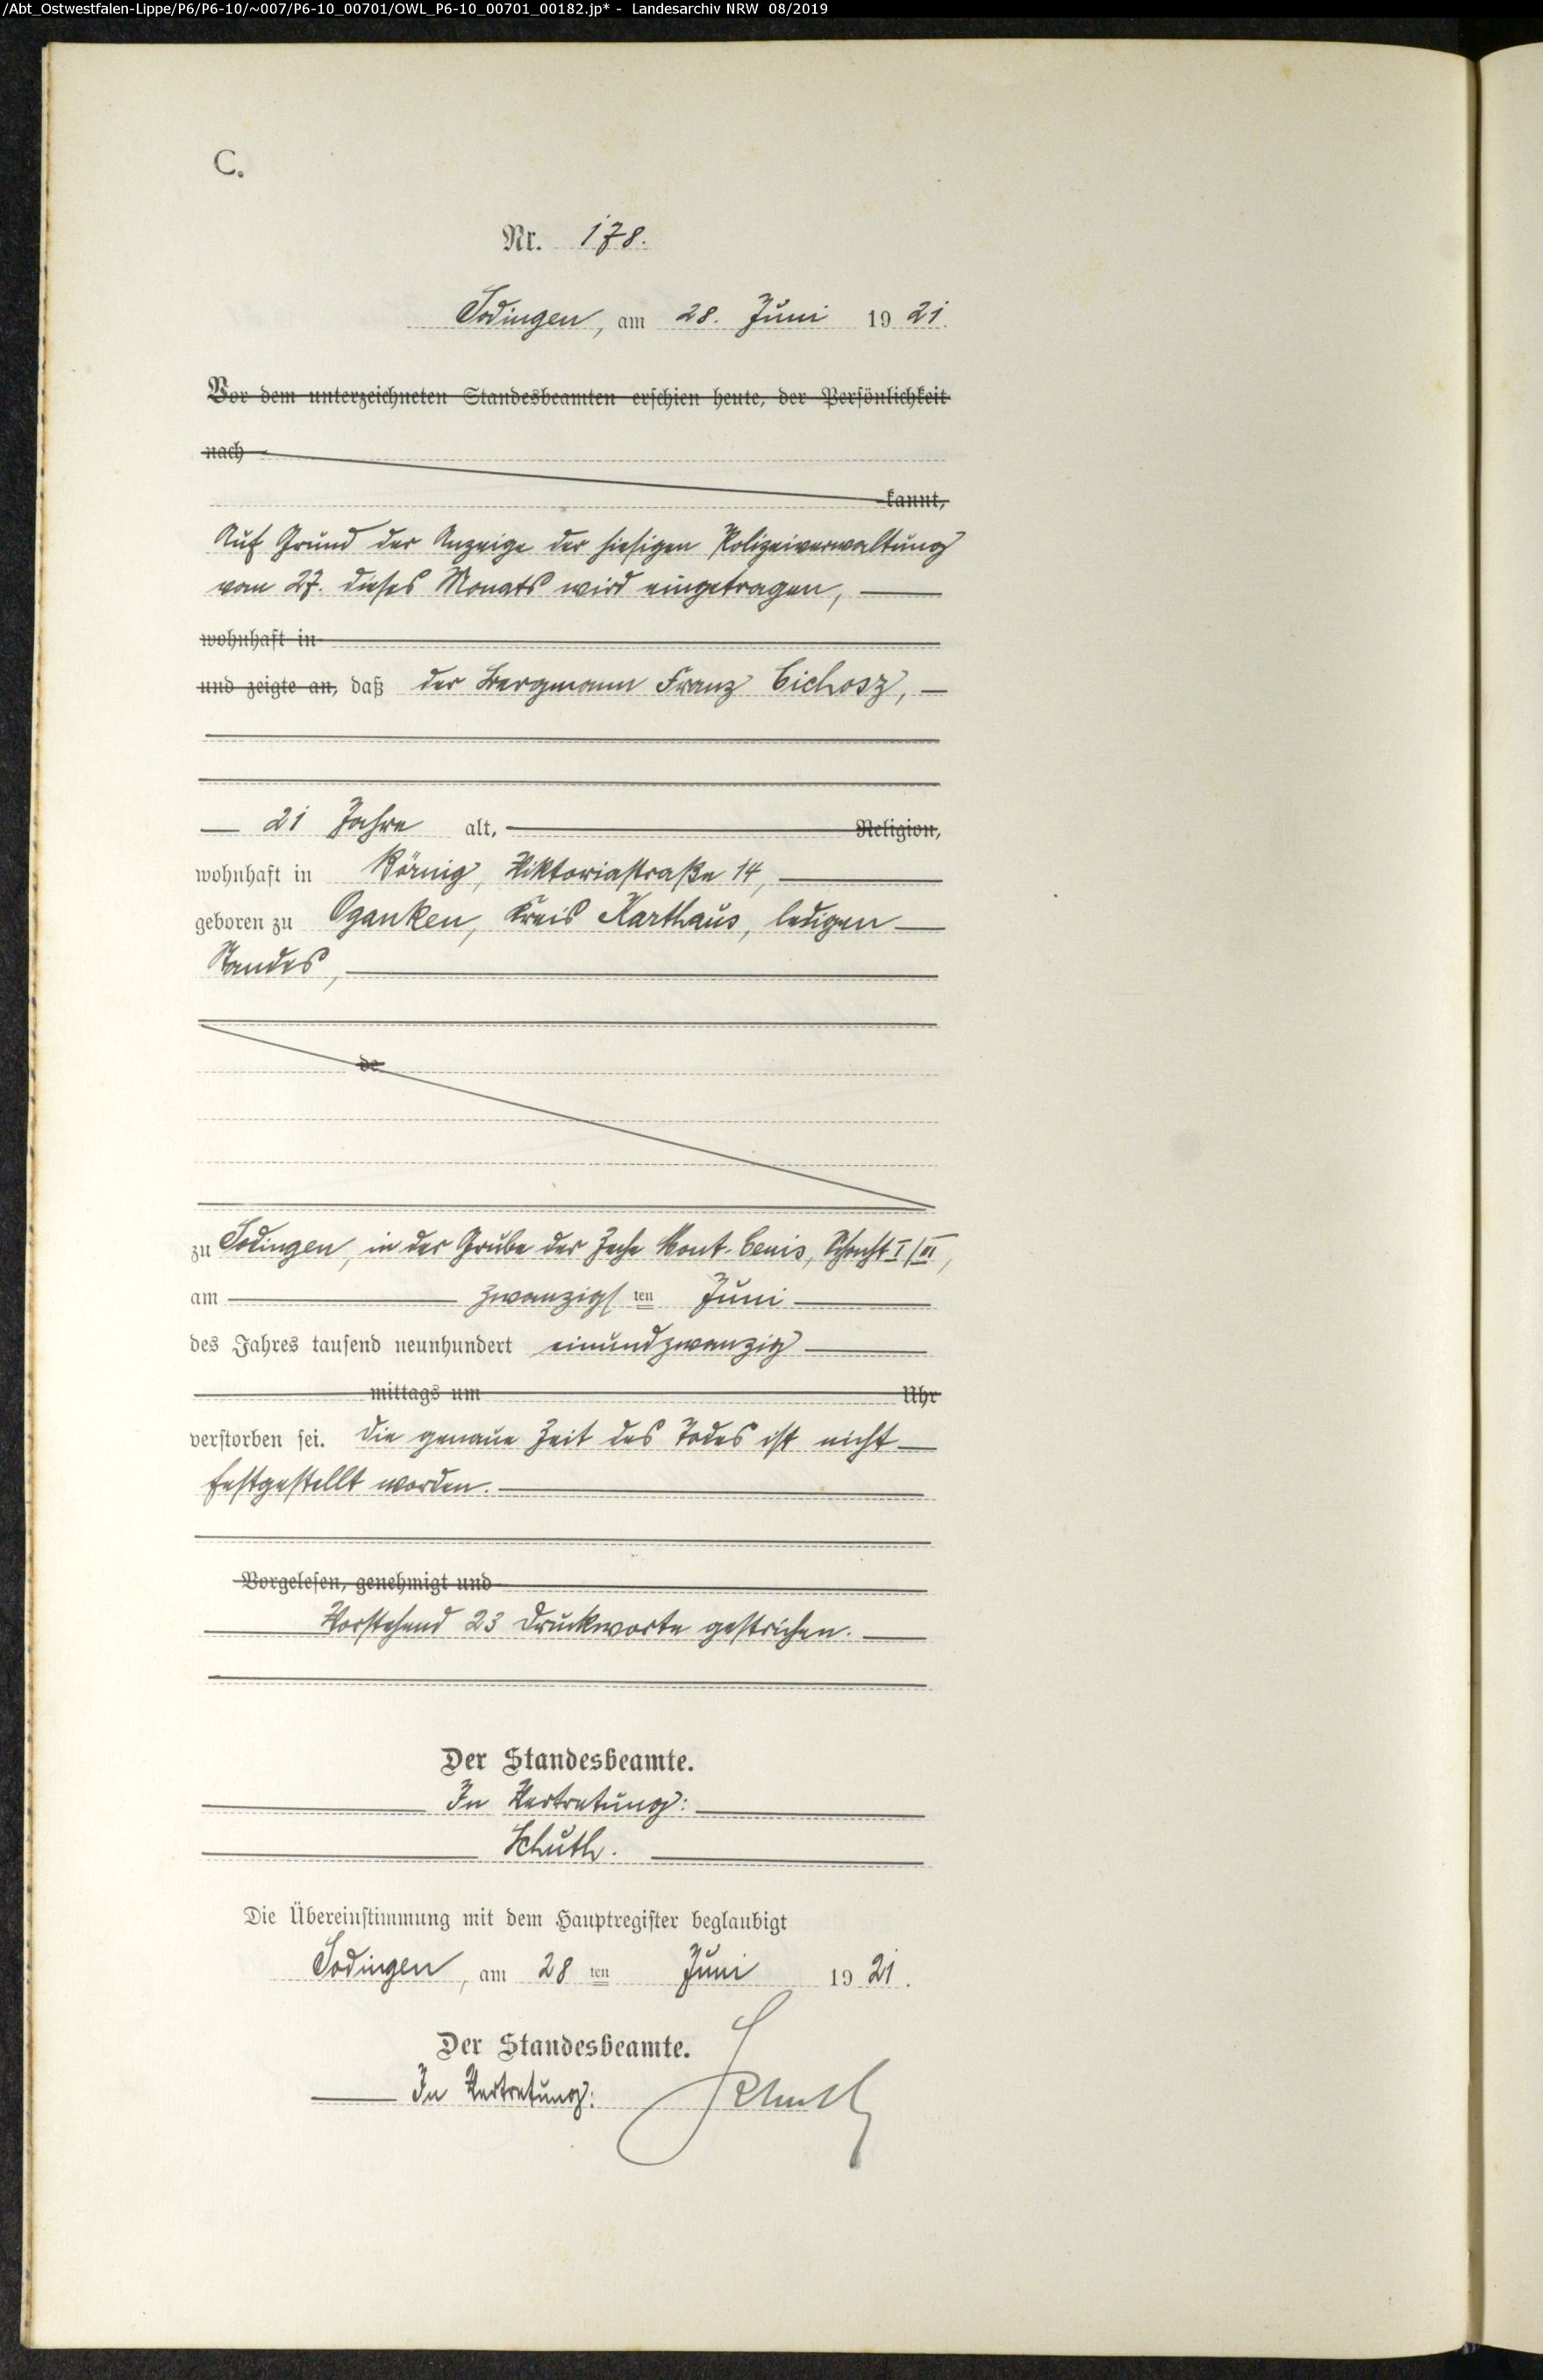 /Abt_Ostwestfalen-Lippe/P6/P6-10/~007/P6-10_00701/OWL_P6-10_00701_00182.jp* - Landesarchiv NRW 08/2019
C.
Nr. 178.
Sodingen, am 28. Juni 1921.
Vor dem unterzeichneten Standesbeamten erschien heute, der Persönlichkeit
nach
kannt,
Auf Grund der Anzeige der hiesigen Polizeiverwaltung
vom 27. dieses Monats wird eingetragen,
wohnhaft in
und zeigte an, daß der Bergmann Franz Cichosz,
21 Jahre alt, Religion,
wohnhaft in Börnig, Viktoriastraße 14,
geboren zu Oganken, Kreis Karthaus, ledigen
Standes,
de
zu Sodingen, in der Grube der Zeche Mont-Cenis, Schacht I/III,
am zwanzigsten Juni
des Jahres tausend neunhundert einundzwanzig
mittags um Uhr
verstorben sei. Die genaue Zeit des Todes ist nicht
festgestellt worden.
Vorgelesen, genehmigt und
Vorstehend 23 Druckworte gestrichen.
Der Standesbeamte.
In Vertretung:
Schuth.
Die Übereinstimmung mit dem Hauptregister beglaubigt
Sodingen, am 28ten Juni 1921.
Der Standesbeamte.
In Vertretung: Schuth